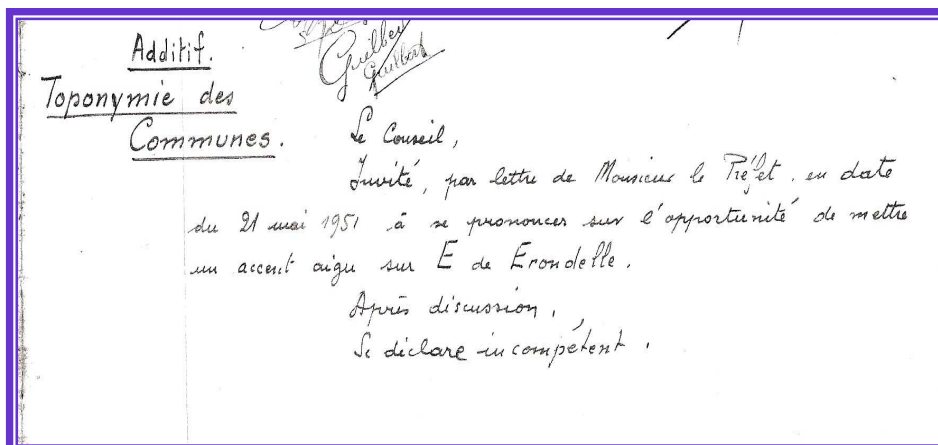 Guilbert
Guilbert
Additif.
Toponymie des
Communes.
Le Conseil,
Invité, par lettre de Monsieur le Préfet, en date
du 21 mai 1951 à se prononcer sur l'opportunité de mettre
un accent aigu sur E de Erondelle.
Après discussion,
Se déclare incompétent.